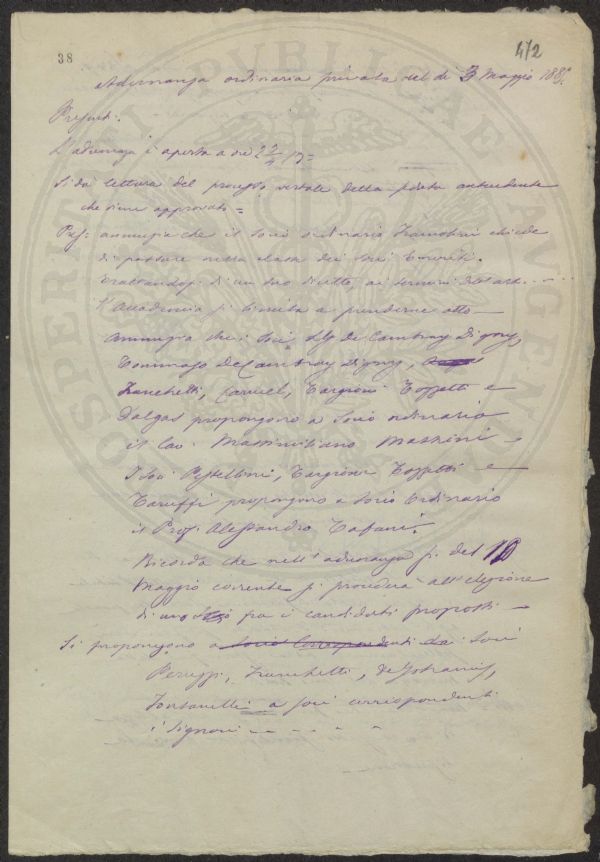 38
472
Adunanza ordinaria privata del dì 3 Maggio 188
Presenti.
L'adunanza è aperta a ore
Si dà lettura del processo verbale della seduta antecedente
che viene approvato =
Pres: annunzia che il socio ordinario chiede
di passare nella classe dei Soci Corristi.
Trattandosi di un suo diritto ai termini dell'art. ....
l'Accademia si limita a prenderne atto —
Annunzia che i Soci L. G. de Cambray Digny,
Tommaso De Cambray Digny,
Franchetti, Caruel, Targioni Tozzetti e
Dalgas propongono a Socio ordinario
il Cav. Massimiliano Massini —
I Soci Pestellini, Targioni Tozzetti e
Taruffi propongono a Socio Ordinario
il Prof. Alessandro Tafani.
Ricorda che nell'adunanza p. del 10
Maggio corrente si procederà all'elezione
di un Socio fra i candidati proposti —
Si propongono a Soci Corrispondenti da Soci
Peruzzi, Franchetti, de Johannis,
Fontanelli a Soci corrispondenti
i Signori - - - - -
PUBLICAE
PROSPERITATI
AUGENDAE